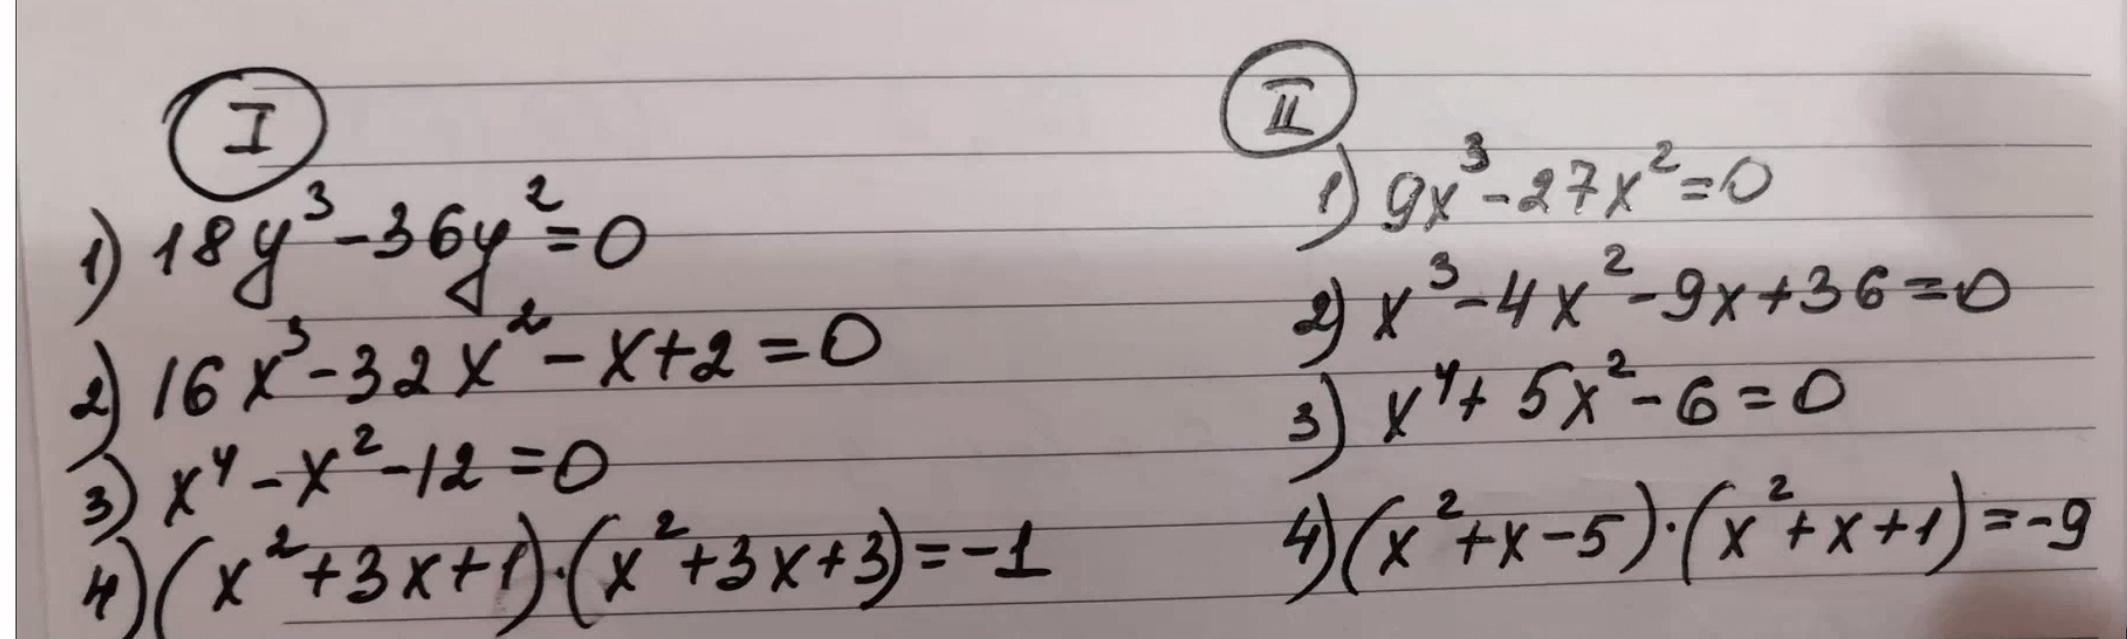 I
1) 18y³-36y²=0
2) 16x³-32x²-x+2=0
3) x⁴-x²-12=0
4) (x²+3x+1)·(x²+3x+3)=-1
II
1) 9x³-27x²=0
2) x³-4x²-9x+36=0
3) x⁴+5x²-6=0
4) (x²+x-5)·(x²+x+1)=-9